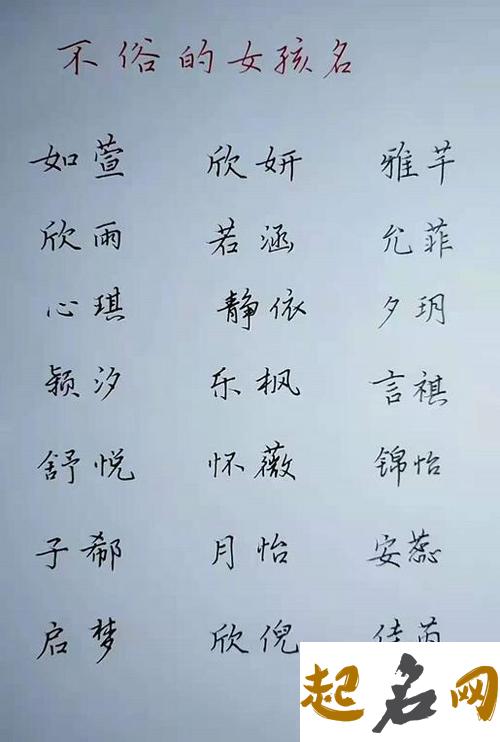 不俗的女孩名
如萱 欣妍 雅芊
欣雨 若涵 允菲
心琪 静依 夕玥
颖汐 乐枫 言祺
舒悦 怀薇 锦怡
子郗 月怡 安蕊
启梦 欣倪
起名网